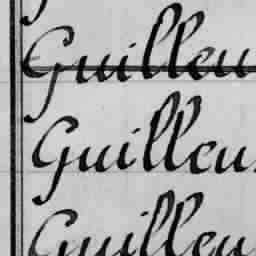 Guilleu
Guilleu
Guilleu